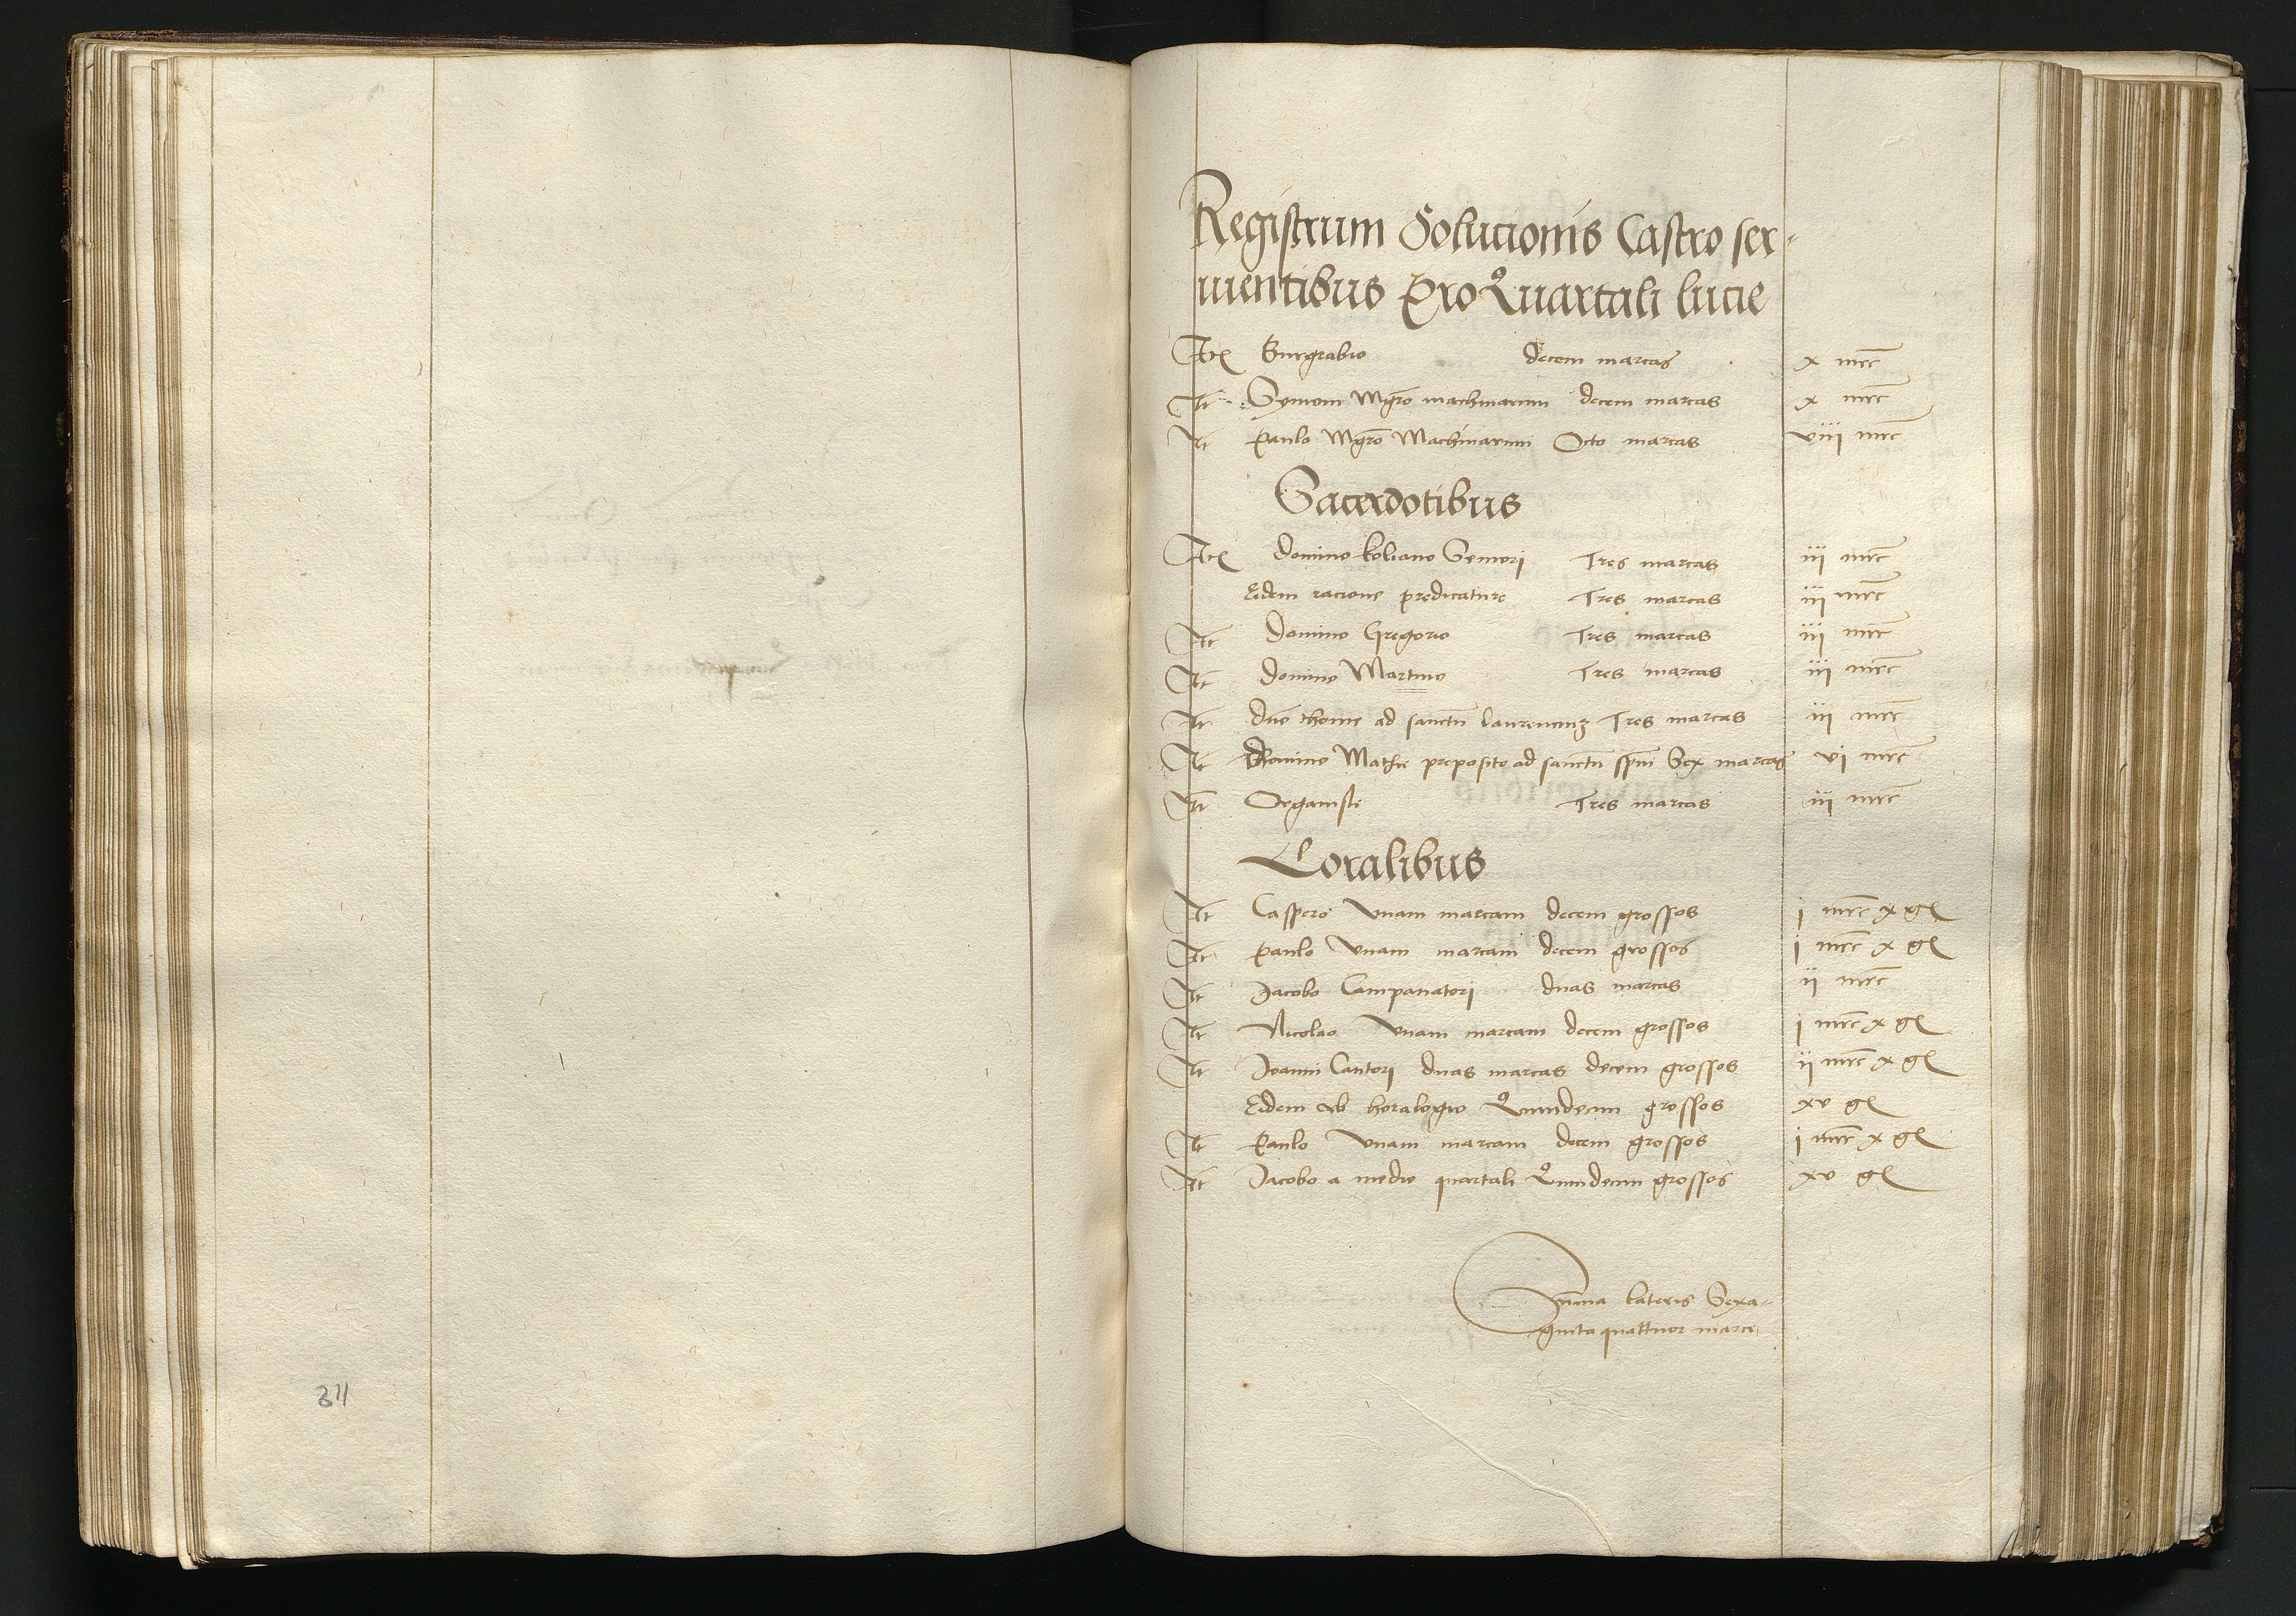 Registrum Solucionis Castro ser-
uientibus Pro Quartali lucie
Burgrabio decem marcas x mrc
It Symoni Mgro machinarum decem marcas x mrc
It Paulo Mgro Machinarum Octo marcas viii mrc
Sacerdotibus
domino Seniori Tres marcas iii mrc
Eidem racione predicature Tres marcas iii mrc
It domino Gregorio Tres marcas iii mrc
It domino Martino Tres marcas iii mrc
It dno thome ad sanctu laurencium Tres marcas iii mrc
It Domino Mathie preposito ad sanctu spm Sex marcas vi mrc
It Organiste Tres marcas iii mrc
Coralibus
It Caspero Vnam marcam decem grossos i mrc x g
It Paulo Vnam marcam decem grossos i mrc x g
It Jacobo Campanatori duas marcas ii mrc
It Nicolao Vnam marcam decem grossos i mrc x g
It Joanni Cantori duas marcas decem grossos ii mrc x g
Eidem ab horalogio Quindecim grossos xv g
It Paulo Vnam marcam decem grossos i mrc x g
It Jacobo a medio quartali Quindecim grossos xv g
Summa lateris Sexa-
ginta quattuor marce